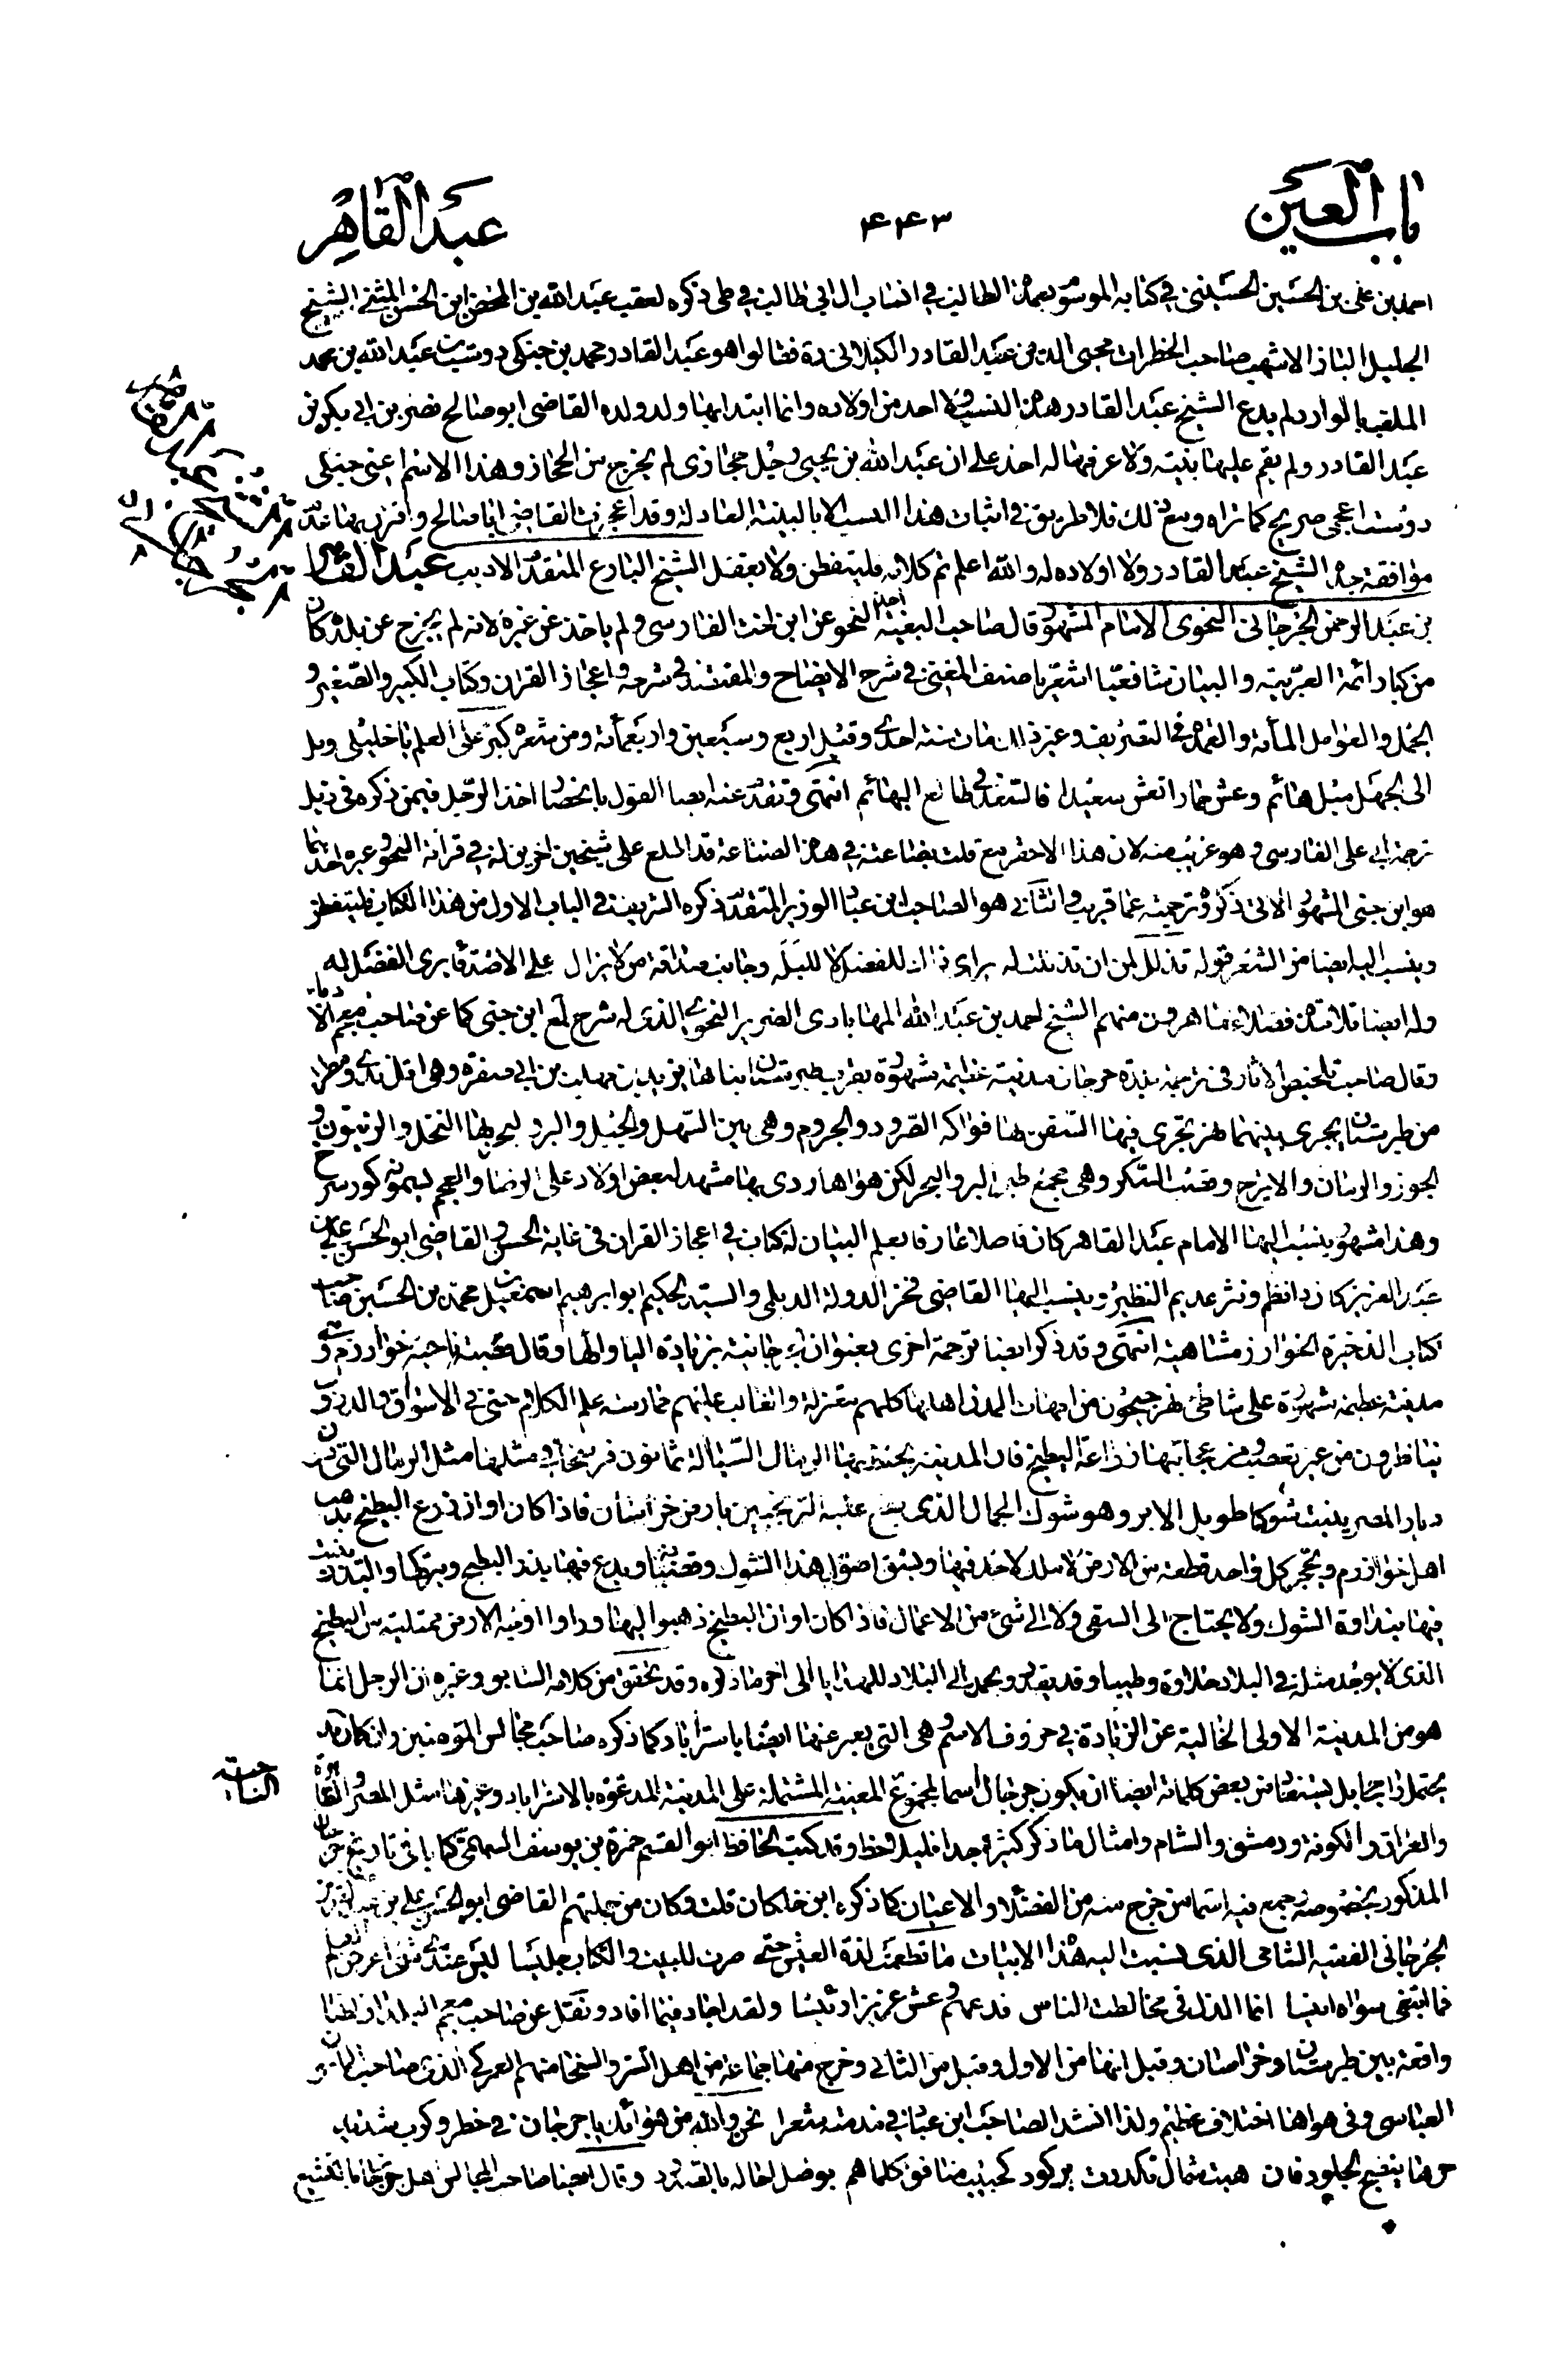 باب العين
۴۴۳
عبد القاهر
احمد بن علي بن الحسين الحسيني في كتابه الموسوم بعمدة الطالب في انساب ال ابي طالب في طي ذكره لعقب عبد الله بن المحض ابن الحسن المثنى الشيخ
الجليل الباز الاشهب صاحب الخطرات محيى الدين عبد القادر الكيلاني فقالوا هو عبد القادر محمد بن جنكي دوست بن عبد الله بن محمد
الملقب بالوارد لم يدع الشيخ عبد القادر هذا النسب ولا احد من اولاده وانما ابتدا بها ولد ولده القاضي ابو صالح نصر بن ابي بكر بن
عبد القادر ولم يقم عليها بينة ولا عرفها له احد على ان عبد الله بن يحيى رجل حجازى لم يخرج من الحجاز وهذا الاسم اعنى جنكي
دوست اعجمى صريح كما تراه ومع ذلك فلا طريق في اثبات هذا النسب الا بالبينة العادلة وقد اعجزت القاضي ابا صالح واقترن بها عدم
موافقة جده الشيخ عبد القادر ولا اولاده له والله اعلم تم كلامه فليتفطن ولا يغفل الشيخ البارع المتقدم الاديب عبد القاهر
بن عبد الرحمن الجرجاني النحوى الامام المشهور قال صاحب البغية اخذ النحو عن ابن اخت الفارسى ولم ياخذ عن غيره لانه لم يخرج عن بلده كان
من كبار ائمة العربية والبيان شافعيا اشعريا صنف المغنى في شرح الايضاح والمقتصد في شرحه واعجاز القران وكتاب الكبير والصغير و
الجمل والعوامل المأة والعمدة في التصريف وغير ذلك مات سنة احدى وقيل اربع وسبعين واربعمائة ومن شعره كبر على العلم يا خليلى ومل
الى الجهل ميل هائم وعش حمارا تعش سعيدا فالسعد في طالع البهائم انتهى وتقدم عنه ايضا القول بانحصار اخذ الرجل فيمن ذكره في ذيل
ترجمة ابي على الفارسى وهو غريب منه لان هذا الاحقر مع قلت بضاعته في هذا الصناعة قد اطلع على شيخين اخرين له في قرائة النحو وغيره احدهما
هو ابن جنى المشهور الاتى ذكره وترجمته عما قريب والثاني هو الصاحب ابن عباد الوزير المتقدم ذكره الشريف في الباب الاول من هذا الكتاب فليتفطن
وينسب اليه ايضا من الشعر قوله تذلل لمن ان تذللت له يرى ذاك للفضل لا للبله وجانب صداقة من لا يزال على الاصدقاء يرى الفضل له
وله ايضا تلامذة فضلاء ماهرون منهم الشيخ احمد بن عبد الله المهابادى الضرير النحوى الذى له شرح لمع ابن جنى كما عن صاحب معجم الادباء
وقال صاحب تلخيص الاثار في ترجمة بلدة جرجان مدينة عظيمة مشهورة بقرب طبرستان بناها يزيد بن مهلب بن ابي صفرة وهى اقل ندى ومطرا
من طبرستان يجرى بينهما نهر تجرى فيها السفن بها فواكه الصرود والجروم وهى بين السهل والجبل والبر والبحر بها النخل والزيتون و
الجوز والرمان والاترج وقصب السكر وهى مجمع طير البر والبحر لكن هواها ردى بها مشهد لبعض اولاد على الرضا والعجم يسمونه كور سرخ
وهذا مشهور ينسب اليها الامام عبد القاهر كان فاضلا عارفا بعلم البيان له كتاب في اعجاز القران في غاية الحسن والقاضي ابو الحسن على بن
عبد العزيز كان ذا نظم ونثر عديم النظير وينسب اليها القاضي فخر الدولة الديلى والسيد الحكيم ابو ابرهيم اسمعيل محمد بن الحسين صاحب
كتاب الذخيرة الخوارزمشاهية انتهى وقد ذكر ايضا ترجمة اخرى بعنوان جرجانية بزيادة اليا والها وقال قصبة ناحية خوارزم و
مدينة عظيمة مشهورة على شاطئ نهر جيحون من امهات المدن اهلها كلهم معتزلة والغالب عليهم ممارسة علم الكلام حتى في الاسواق والدروب
يناظرون من غير تعصب ومن عجائبها زراعة البطيخ فان المدينة يحيط بها الرمال السيالة ثمانون فرسخا في مثلها مثل الرمال التى دون
ديار المصر ينبت شوكا طويل الابر وهو شوك الجمال الذى يقع عليه الترنجبين بارض خراسان فاذا كان اوان زرع البطيخ يذهب
اهل خوارزم ويحجر كل واحد قطعة من الارض لا ملك لاحد فيها ويشق اصول هذا الشوك وقضبانها ويدع فيها بذر البطيخ ويتركها والبذر ينبت
فيها بنداوة الشوك ولا يحتاج الى السقى ولا الى شئ من الاعمال فاذا كان اوان البطيخ ذهبوا اليها وراوا الارض ممتلية من البطيخ
الذى لا يوجد مثله في البلاد حلاوة وطيبا وقد يقدد ويحمل الى البلاد للهدايا الى اخر ما ذكره وقد تحقق من كلامه السابق وغيره ان الرجل انما
هو من المدينة الاولى الخالية عن الزيادة في حروف الاسم وهى التى يعبر عنها ايضا باسترآباد كما ذكره صاحب مجالس المؤمنين وان كان قد
يحتمل بل يستفاد من بعض كلماته ايضا ان يكون جرجان اسما لمجموع المعينة المشتملة على المدينة المدعوة بالاسترآباد وغيرها مثل المصر والقاهرة
الناحية
والعراق والكوفة ودمشق والشام وامثال ما ذكر كثيرة جدا فليلاحظ وقد كتب الحافظ ابو القسم حمزة بن يوسف السهمى كما ياتى تاريخ جرجان
المذكور بخصوصه وجمع فيه اسما من خرج منه من الفضلاء والاعيان كما ذكره ابن خلكان قلت وكان من جملتهم القاضى ابو الحسن على بن عبد العزيز
الجرجاني الفقيه الشافعى الذى نسبت اليه هذا الابيات ما تطعمت لذة العيش حتى صرت للبيت والكتاب جليسا ليس عندى شئ اعز من العلم
فما ابتغى سواه انيسا انما الذل في مخالطت الناس فدعهم وعش عزيزا رئيسا ولقد اجاد فيما افاد ونقل عن صاحب معجم البلدان انها
واقعة بين طبرستان وخراسان وقيل انها من الاول وقيل من الثاني وخرج منها جماعة من اهل الستر والسخا منهم العمركى الذى صاحب المامون
العباسى وفى هواها اختلاف عظيم ولذا انشد الصاحب ابن عباد في مذمته شعرا نحن والله من هوائك يا جرجان في خطر وكرب شديد
حرها ينضج الجلود فان هبت شمالا تكدرت بركود كحبيب منافق كلما هم بوصل احاله بالصدود وقال ايضا صاحب المجالس اهل جرجان بالتشيع